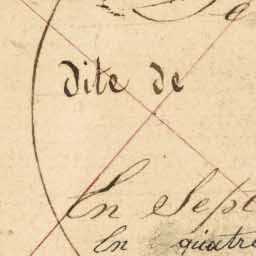 dite de
En Sept
En quatre